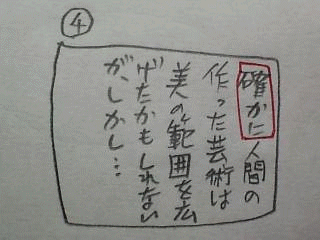 ④
確かに人間の
作った芸術は
美の範囲を広
げたかもしれない
が、しかし…